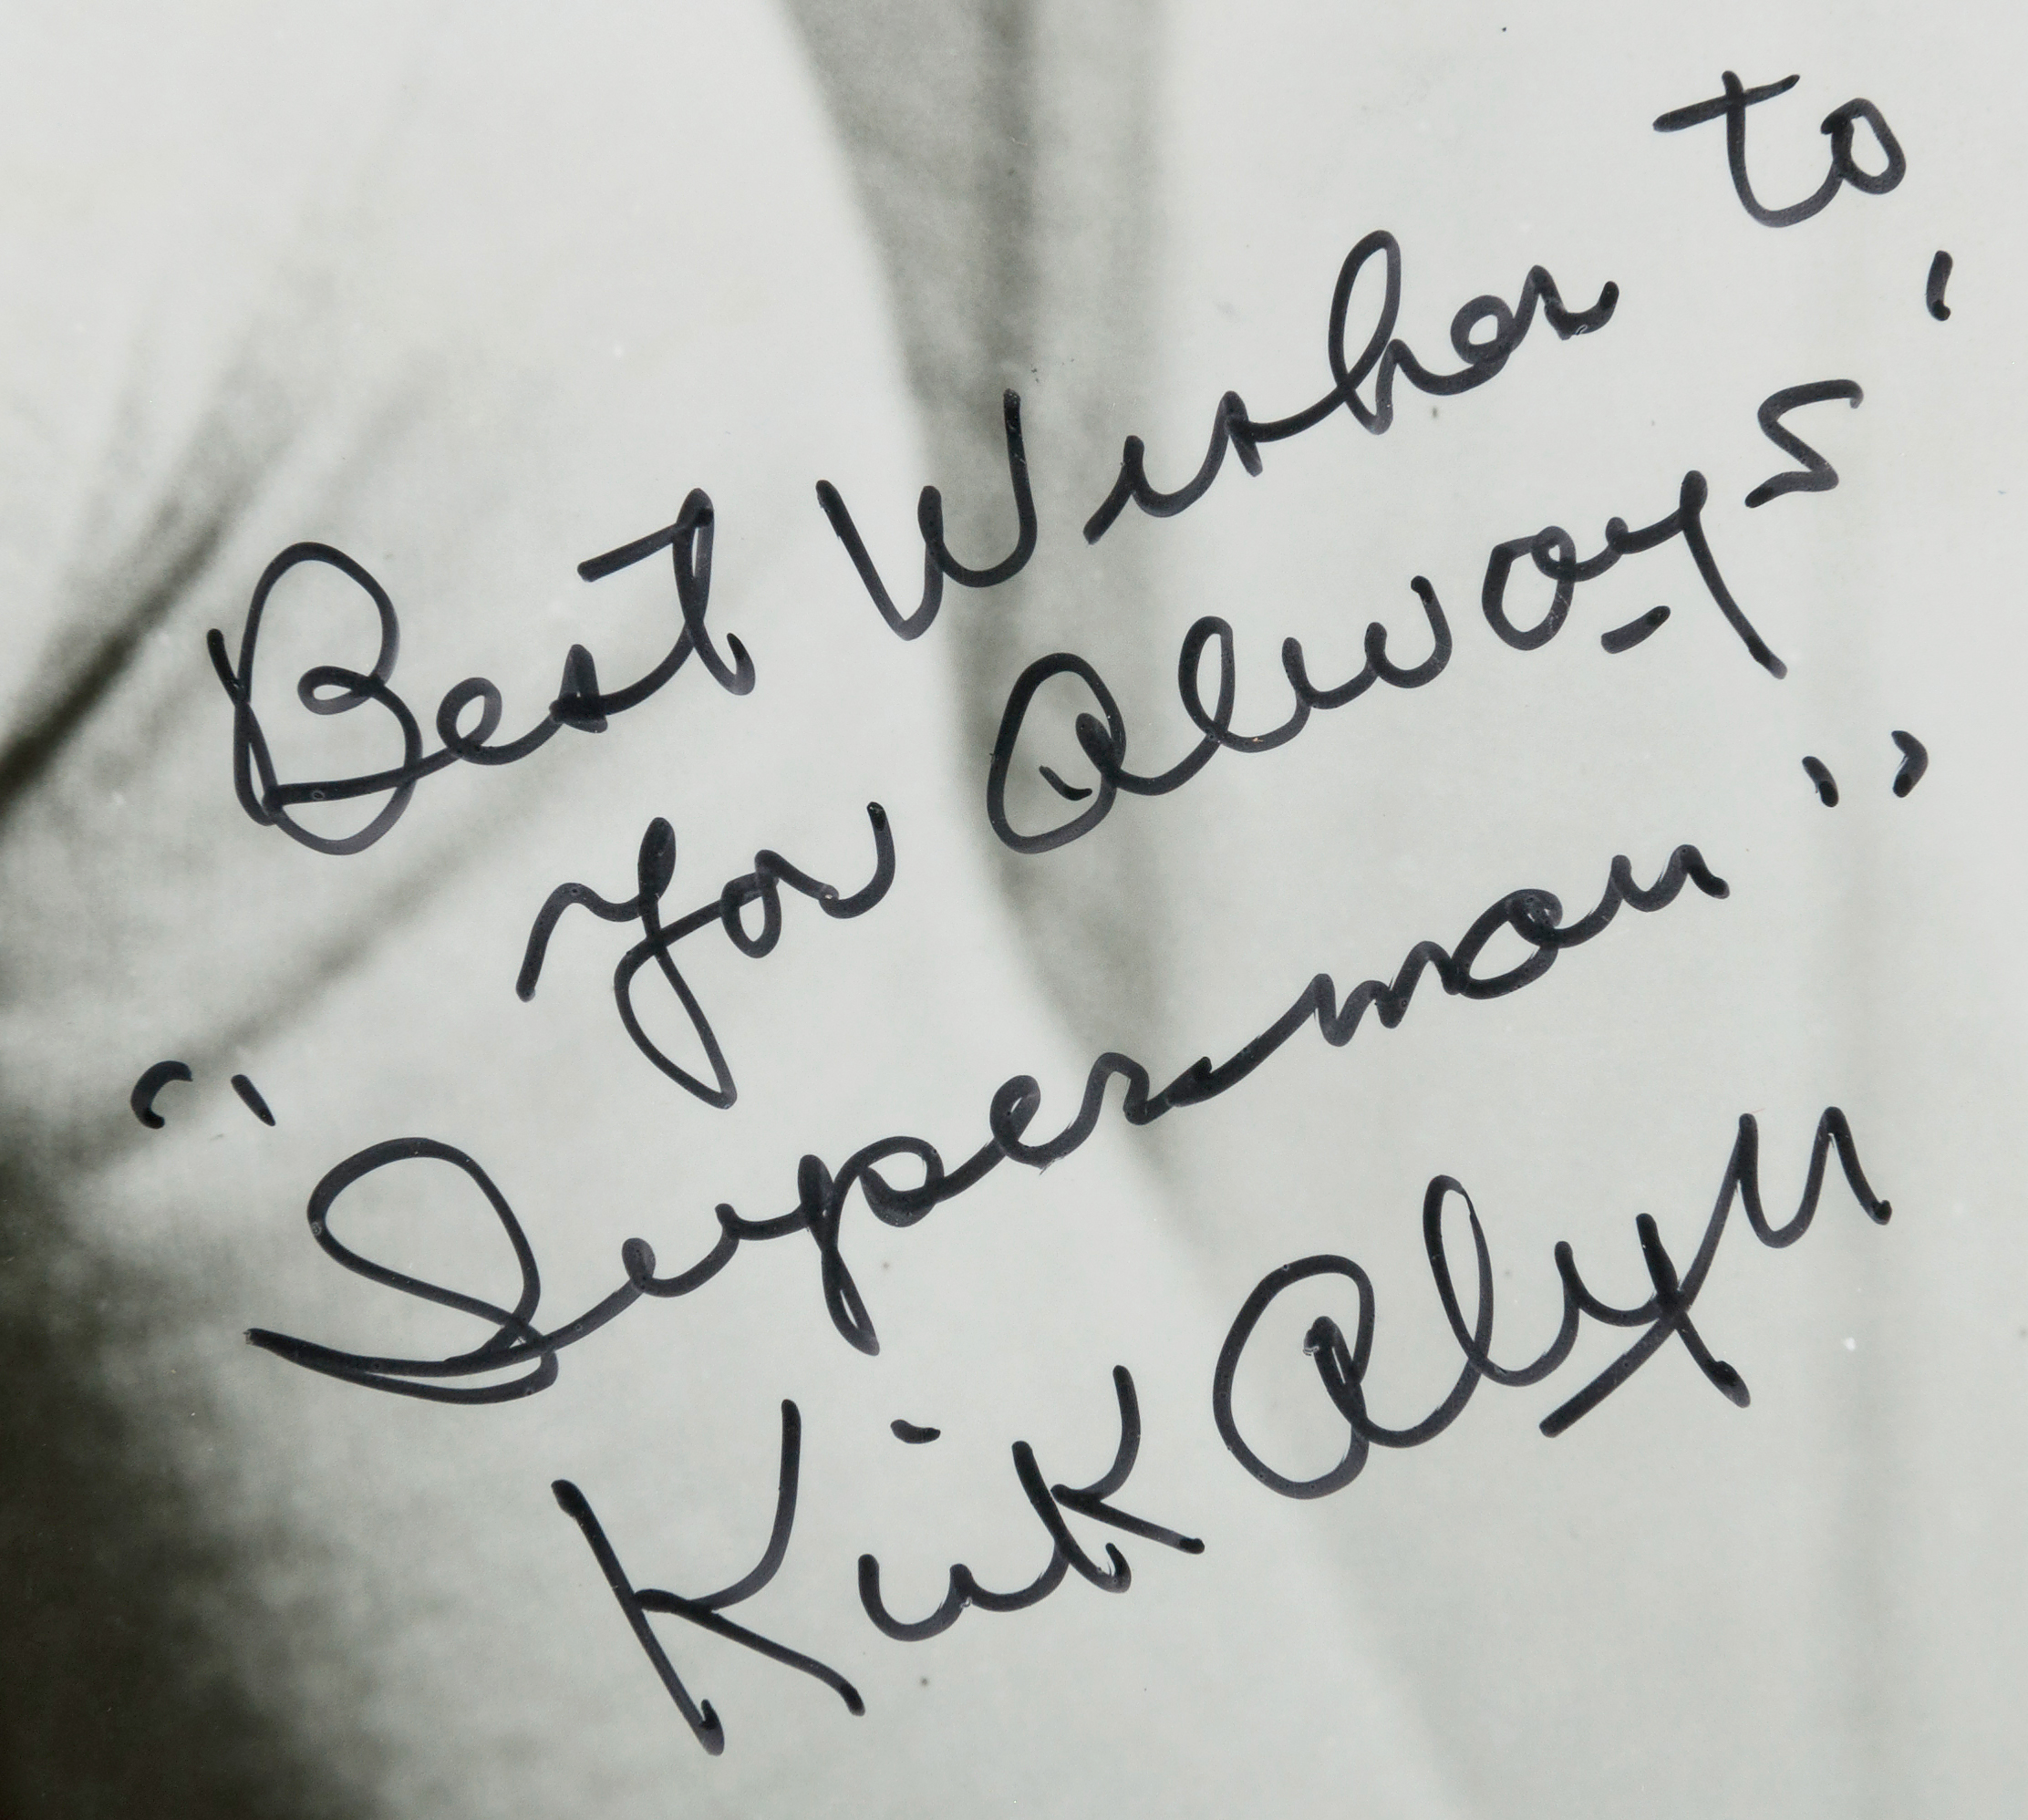 Best Wishes to
you Always'
"Superman"
Kirk Alyn